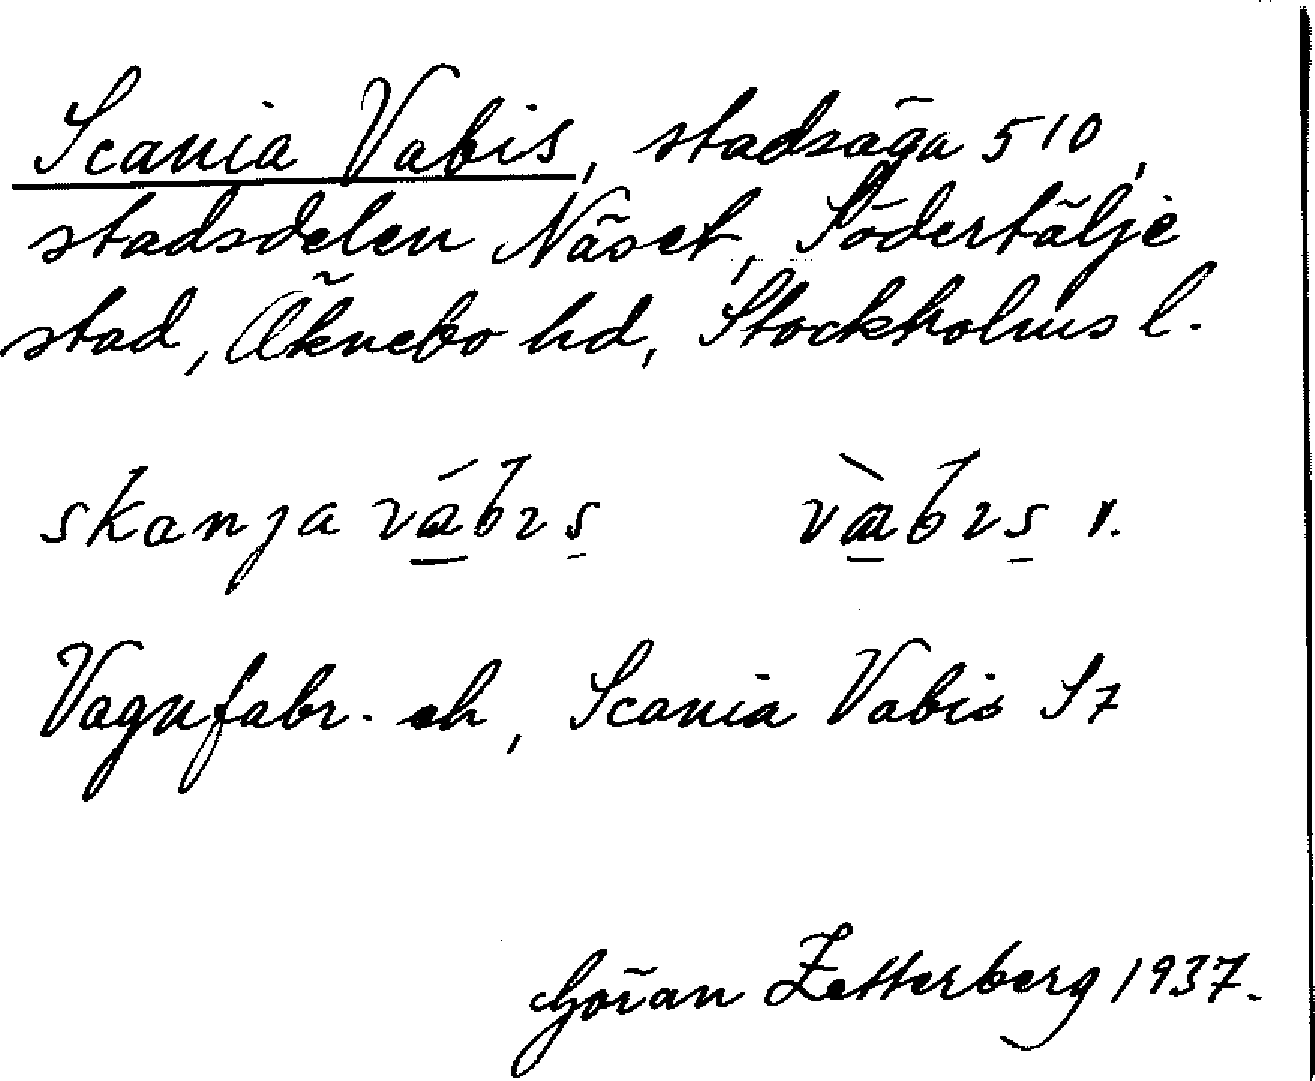 Scania Vabis, stadsäga 510,
stadsdelen Näset, Södertälje
stad, Öknebo hd, Stockholms l.
skanja vábɩs vàbɩs r.
Vagnfabr. ek, Scania Vabis S7
Göran Zetterberg 1937.